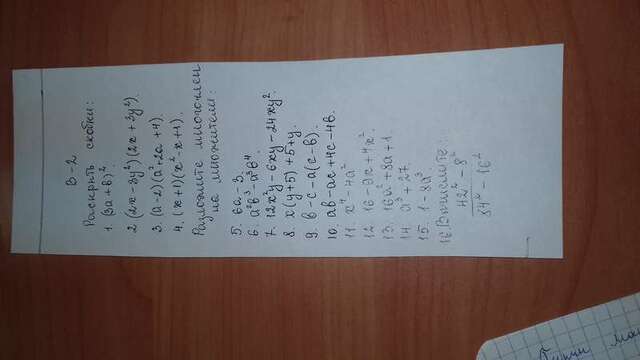 В-2
Раскрыть скобки:
1. (3a + b)².
2. (2x - 3y²)(2x + 3y²).
3. (a-2)(a²+2a+4).
4. (x+1)(x²-x+1).
Разложите многочлен
на множители:
5. 6a - 3.
6. a²b³ - a³b⁴.
7. 12x²y - 6xy - 24xy².
8. x(y+5)+5+y.
9. b-c-a(c-b).
10. ab-ac+4c-4b.
11. x⁴ - 4a²
12. 16-9x+4x².
13. 16a²+8a+1.
14. a³+27.
15. 1-8a³.
16. Вычислите:
42² - 8²
34² - 16²